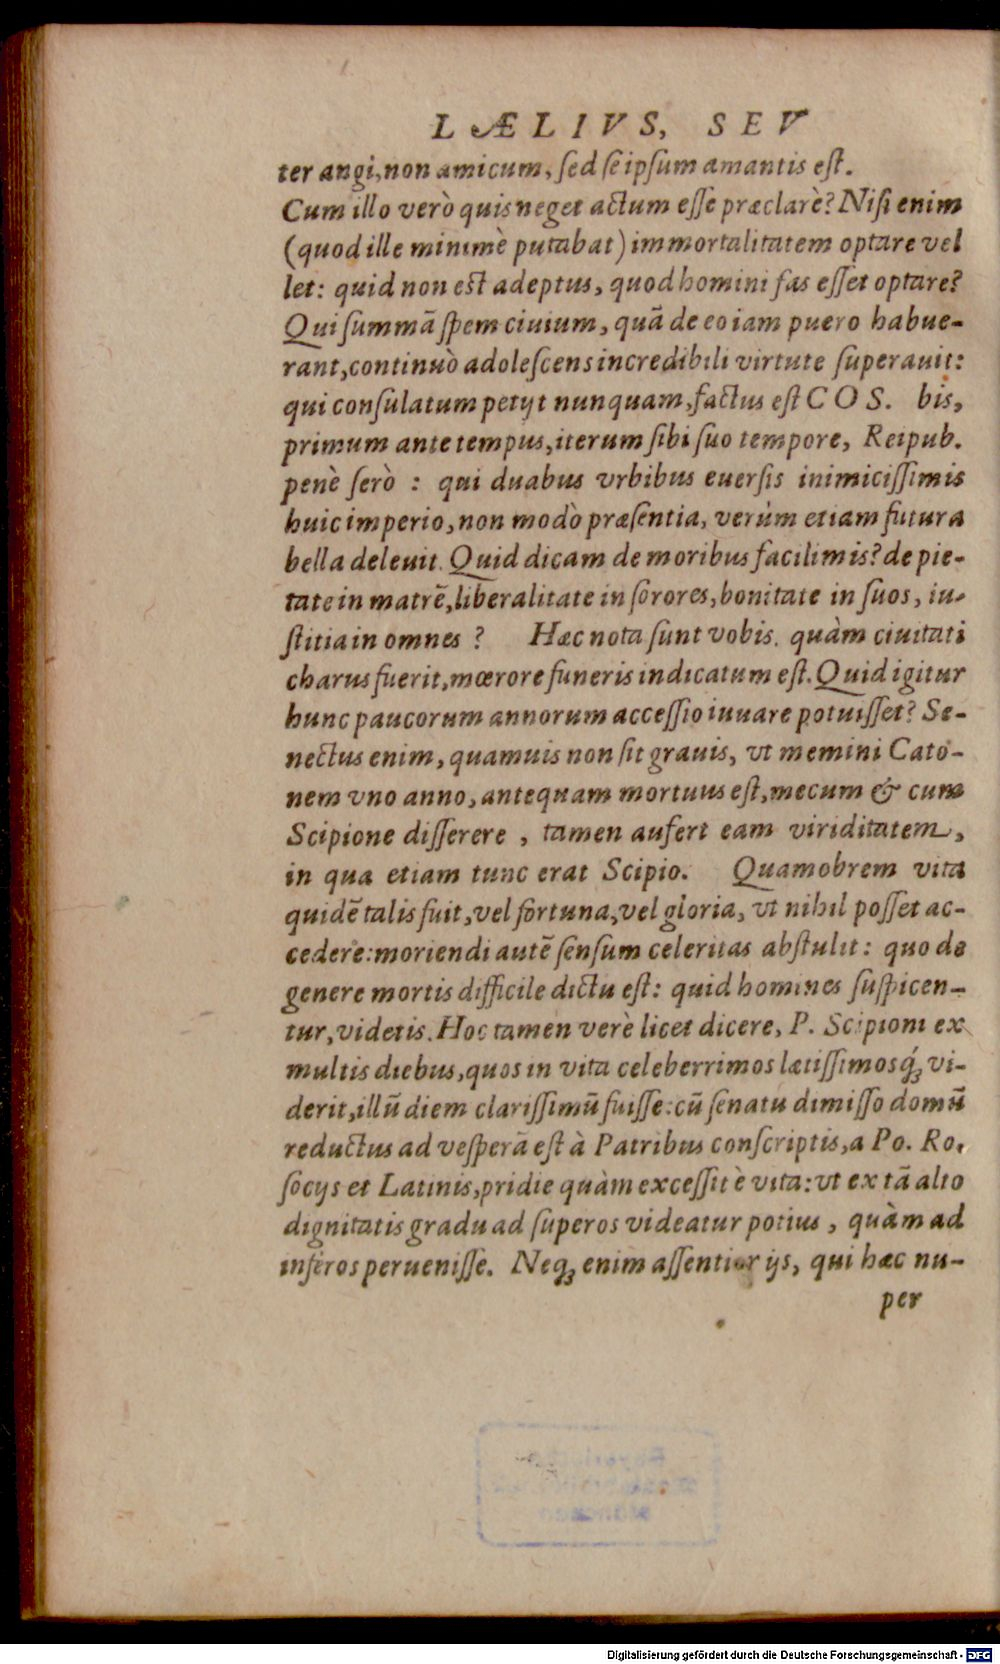 LÆLIVS, SEV
ter angi, non amicum, sed seipsum amantis est.
Cum illo verò quis neget actum esse præclarè? Nisi enim
(quod ille minimè putabat) immortalitatem optare vel
let: quid non est adeptus, quod homini fas esset optare?
Qui summã spem ciuium, quã de eo iam puero habue-
rant, continuò adolescens incredibili virtute superauit:
qui consulatum petijt nunquam, factus est COS. bis,
primum ante tempus, iterum sibi suo tempore, Reipub.
penè serò : qui duabus vrbibus euersis inimicissimis
huic imperio, non modò præsentia, verùm etiam futura
bella deleuit. Quid dicam de moribus facilimis? de pie-
tate in matrẽ, liberalitate in sorores, bonitate in suos, iu-
stitia in omnes ? Hæc nota sunt vobis. quàm ciuitati
charus fuerit, mœrore funeris indicatum est. Quid igitur
hunc paucorum annorum accessio iuuare potuisset? Se-
nectus enim, quamuis non sit grauis, vt memini Cato-
nem vno anno, antequam mortuus est, mecum & cum
Scipione disserere , tamen aufert eam viriditatem,
in qua etiam tunc erat Scipio. Quamobrem vita
quidẽ talis fuit, vel fortuna, vel gloria, vt nihil posset ac-
cedere: moriendi autẽ sensum celeritas abstulit: quo de
genere mortis difficile dictu est: quid homines suspicen-
tur, videtis. Hoc tamen verè licet dicere, P. Scipioni ex
multis diebus, quos in vita celeberrimos lætissimosq́ꝫ vi-
derit, illũ diem clarissimũ fuisse: cũ senatu dimisso domũ
reductus ad vesperã est à Patribus conscriptis, a Po. Ro.
socijs et Latinis, pridie quàm excessit è vita: vt ex tã alto
dignitatis gradu ad superos videatur potius , quàm ad
inferos peruenisse. Neqꝫ enim assentior ijs, qui hæc nu-
per
Digitalisierung gefördert durch die Deutsche Forschungsgemeinschaft - DFG